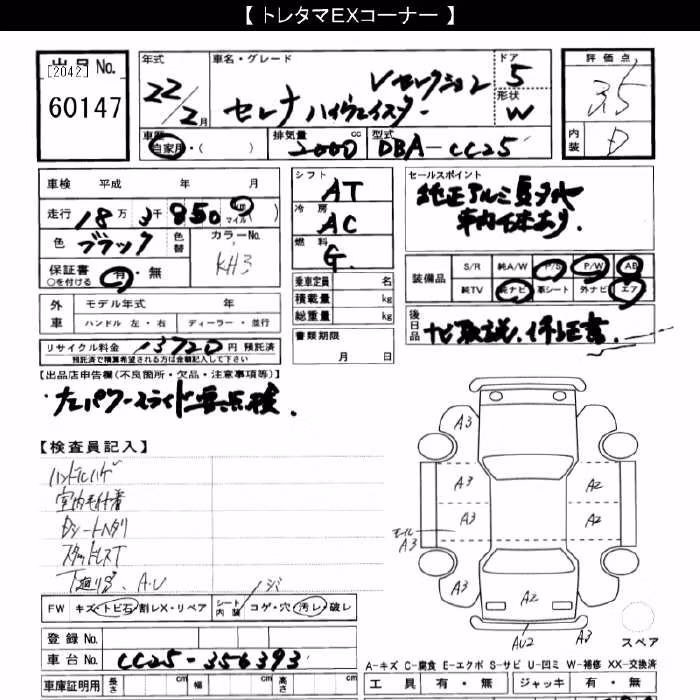 【 トレタマEXコーナー 】
出品 No.
[2042]
60147
年式
22/2月
車名・グレード
Vセレクション
セレナ ハイウェイスター
ドア
5
形状
W
評価点
3.5
内装
D
車歴
自家用・( )
排気量 cc
2000
型式
DBA-CC25
車検 平成 年 月
走行 18万 3千 850 マイル( )
色
ブラック
色替
カラーNo.
KH3
保証書
○を付ける
有・無
外車
モデル年式 年
ハンドル 左・右 ディーラー・並行
リサイクル料金 13720 円 預託済
預託済で積算希望される方は金額記入して下さい
シフト
AT
冷房
AC
燃料
G
乗車定員 名
積載量 kg
総重量 kg
書類期限
月 日
セールスポイント
純正アルミ夏タイヤ
車内積あり
装備品
S/R 純A/W P/S P/W AB
純TV 純ナビ 革シート 外ナビ エア
後日品
ナビ取説、保証書
【出品店申告欄(不良箇所・欠品・注意事項等)】
左パワースライド要点検.
【検査員記入】
ハンドルハゲ
室内毛付着
Dシートヘタリ
スタッドレスT
下廻りサビ、A.U
FW キズ・トビ石・割レX・リペア
シート内装 コゲ・穴・汚レ・破レ
シミ
登録 No.
車台 No. CC25-356393
車庫証明用 長さ cm 幅 cm 高さ cm
A3
A3
A2
A3
A2
モール
A3
A3
A2
AU2
A3
スペア
A-キズ C-腐食 E-エクボ S-サビ U-凹ミ W-補修 XX-交換済
工具 有・無 ジャッキ 有・無